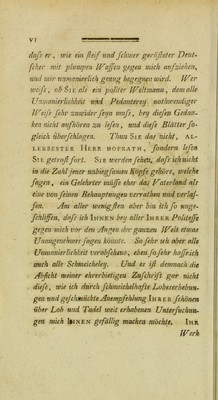 VI
daſs er, wie ein ſteif und ſchwer gerüſteter Deut-
ſcher mit plumpen Waffen gegen mich aufziehen,
und mir unmanierlich genug begegnen wird. Wer
weiſs, ob SIE als ein politer Weltmann, dem alle
Unmanierlichkeit und Pedanterey nothwendiger
Weiſe ſehr zuwider ſeyn muſs, bey dieſen Gedan-
ken nicht aufhören zu leſen, und dieſe Blätter ſo-
gleich überſchlagen. Thun SIE das nicht, AL-
LERBESTER HERR HOFRATH, ſondern leſen
SIE getroſt fort. SIE werden ſehen, daſs ich nicht
in die Zahl jener unbiegſamen Köpfe gehöre, welche
ſagen, ein Gelehrter müſſe eher das Vaterland als
eine von ſeinen Behauptungen verrathen und verlaſ-
ſen. Am aller wenigſten aber bin ich ſo unge-
ſchliffen, daſs ich IHNEN bey aller IHRER Politeſſe
gegen mich vor den Augen der ganzen Welt etwas
Unangenehmes ſagen könnte. So ſehr ich aber alle
Unmanierlichkeit verabſcheue, eben ſo ſehr haſſe ich
auch alle Schmeicheley. Und es iſt demnach die
Abſicht meiner ehrerbietigen Zuſchrift gar nicht
dieſe, wie ich durch ſchmeichelhafte Lobeserhebun-
gen und geſchmückte Anempfehlung IHRER ſchönen
über Lob und Tadel weit erhabenen Unterſuchun-
gen mich IHNEN gefällig machen möchte. IHR
Werk